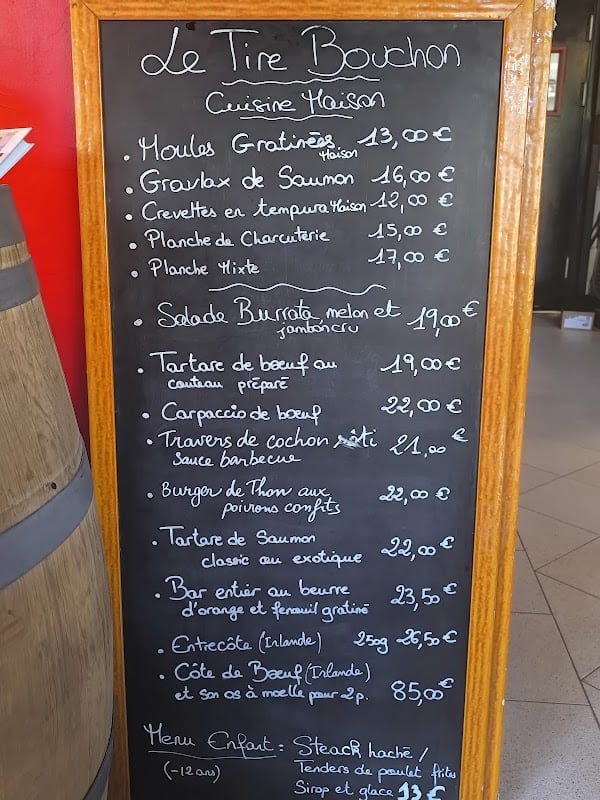 Le Tire Bouchon
Cuisine Maison
• Moules Gratinées Maison 13,00 €
• Gravlax de Saumon 16,00 €
• Crevettes en tempura Maison 12,00 €
• Planche de Charcuterie 15,00 €
• Planche Mixte 17,00 €
• Salade Burrata, melon et 19,00 €
jambon cru
• Tartare de bœuf au 19,00 €
couteau préparé
• Carpaccio de bœuf 22,00 €
• Travers de cochon rôti 21,00 €
sauce barbecue
• Burger de Thon aux 22,00 €
poivrons confits
• Tartare de Saumon
classic ou exotique 22,00 €
• Bar entier au beurre 23,50 €
d'orange et fenouil gratiné
• Entrecôte (Irlande) 250g 26,50 €
• Côte de Bœuf (Irlande)
et son os à moelle pour 2p. 85,00 €
Menu Enfant : Steack haché /
(-12 ans) Tenders de poulet frites
Sirop et glace 13 €